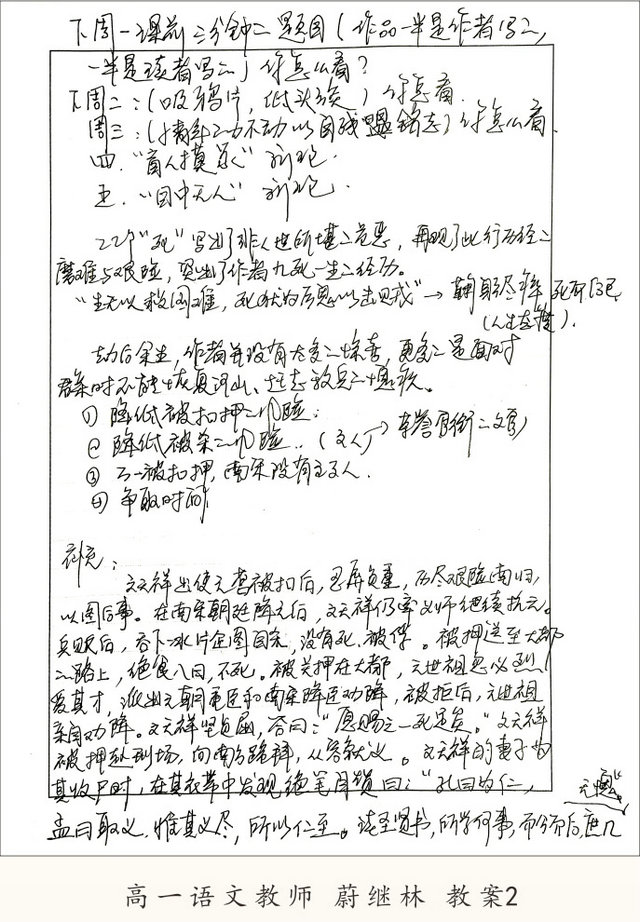 下周一课前三分钟之题目(作品一半是作者写之,
一半是读者写之)你怎么看?
下周二:(吸鸦片,低头族)你怎看.
周三:( 不动以自残 铭志)你怎么看.
四."盲人摸象"新论.
五."目中无人"新论.
22个"死"写出了非人世所堪之苦恶,再现了此行历经之
磨难与艰险,突出了作者九死一生之经历。
"生无以救国难,死犹为厉鬼以击贼"→鞠躬尽瘁死而后已
(人生支撑).
劫后余生,作者并没有太多之惊喜,更多之是面对
危难时不能恢复河山、壮志 之憾疚。
① 降低被扣押之风险.
② 降低被杀之风险..(文人)→享誉官衔之文官
③ 万一被扣押,南宋没有主人.
④ 争取时间
补充:
文天祥出使元营被扣后,忍辱负重,历尽艰险南归,
以图后事。在南宋朝廷降元后,文天祥仍率义师继续抗元。
兵败后,吞下冰片企图自杀,没有死,被俘。被押送至大都
之路上,绝食八日,不死。被关押在大都,元世祖忽必烈
爱其才,派出元朝重臣和南宋降臣劝降,被拒后,元世祖
亲自劝降。文天祥坚贞不屈,答曰:"愿赐之一死足矣。"文天祥
被押赴刑场,向南方跪拜,从容就义。文天祥的妻子为
其收尸时,在其衣带中发现绝笔自赞曰:"孔曰成仁,
孟曰取义,惟其义尽,所以仁至。读圣贤书,所学何事,而今而后,庶几
无愧"
高一语文教师 蔚继林 教案2